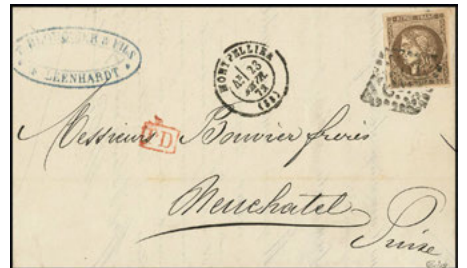 & FILS
LEENHARDT
MONTPELLIER
23
AVR.
73
(33)
PD
Messieurs Bouvier frères
Neuchatel
Suisse